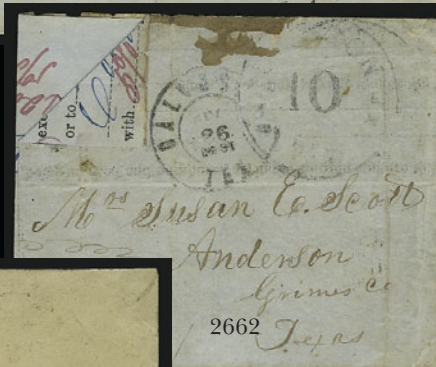 exe
or to
with
DALLAS
TEX
26
10
Mrs Susan E. Scott
Anderson
Grimes Co
Texas
2662